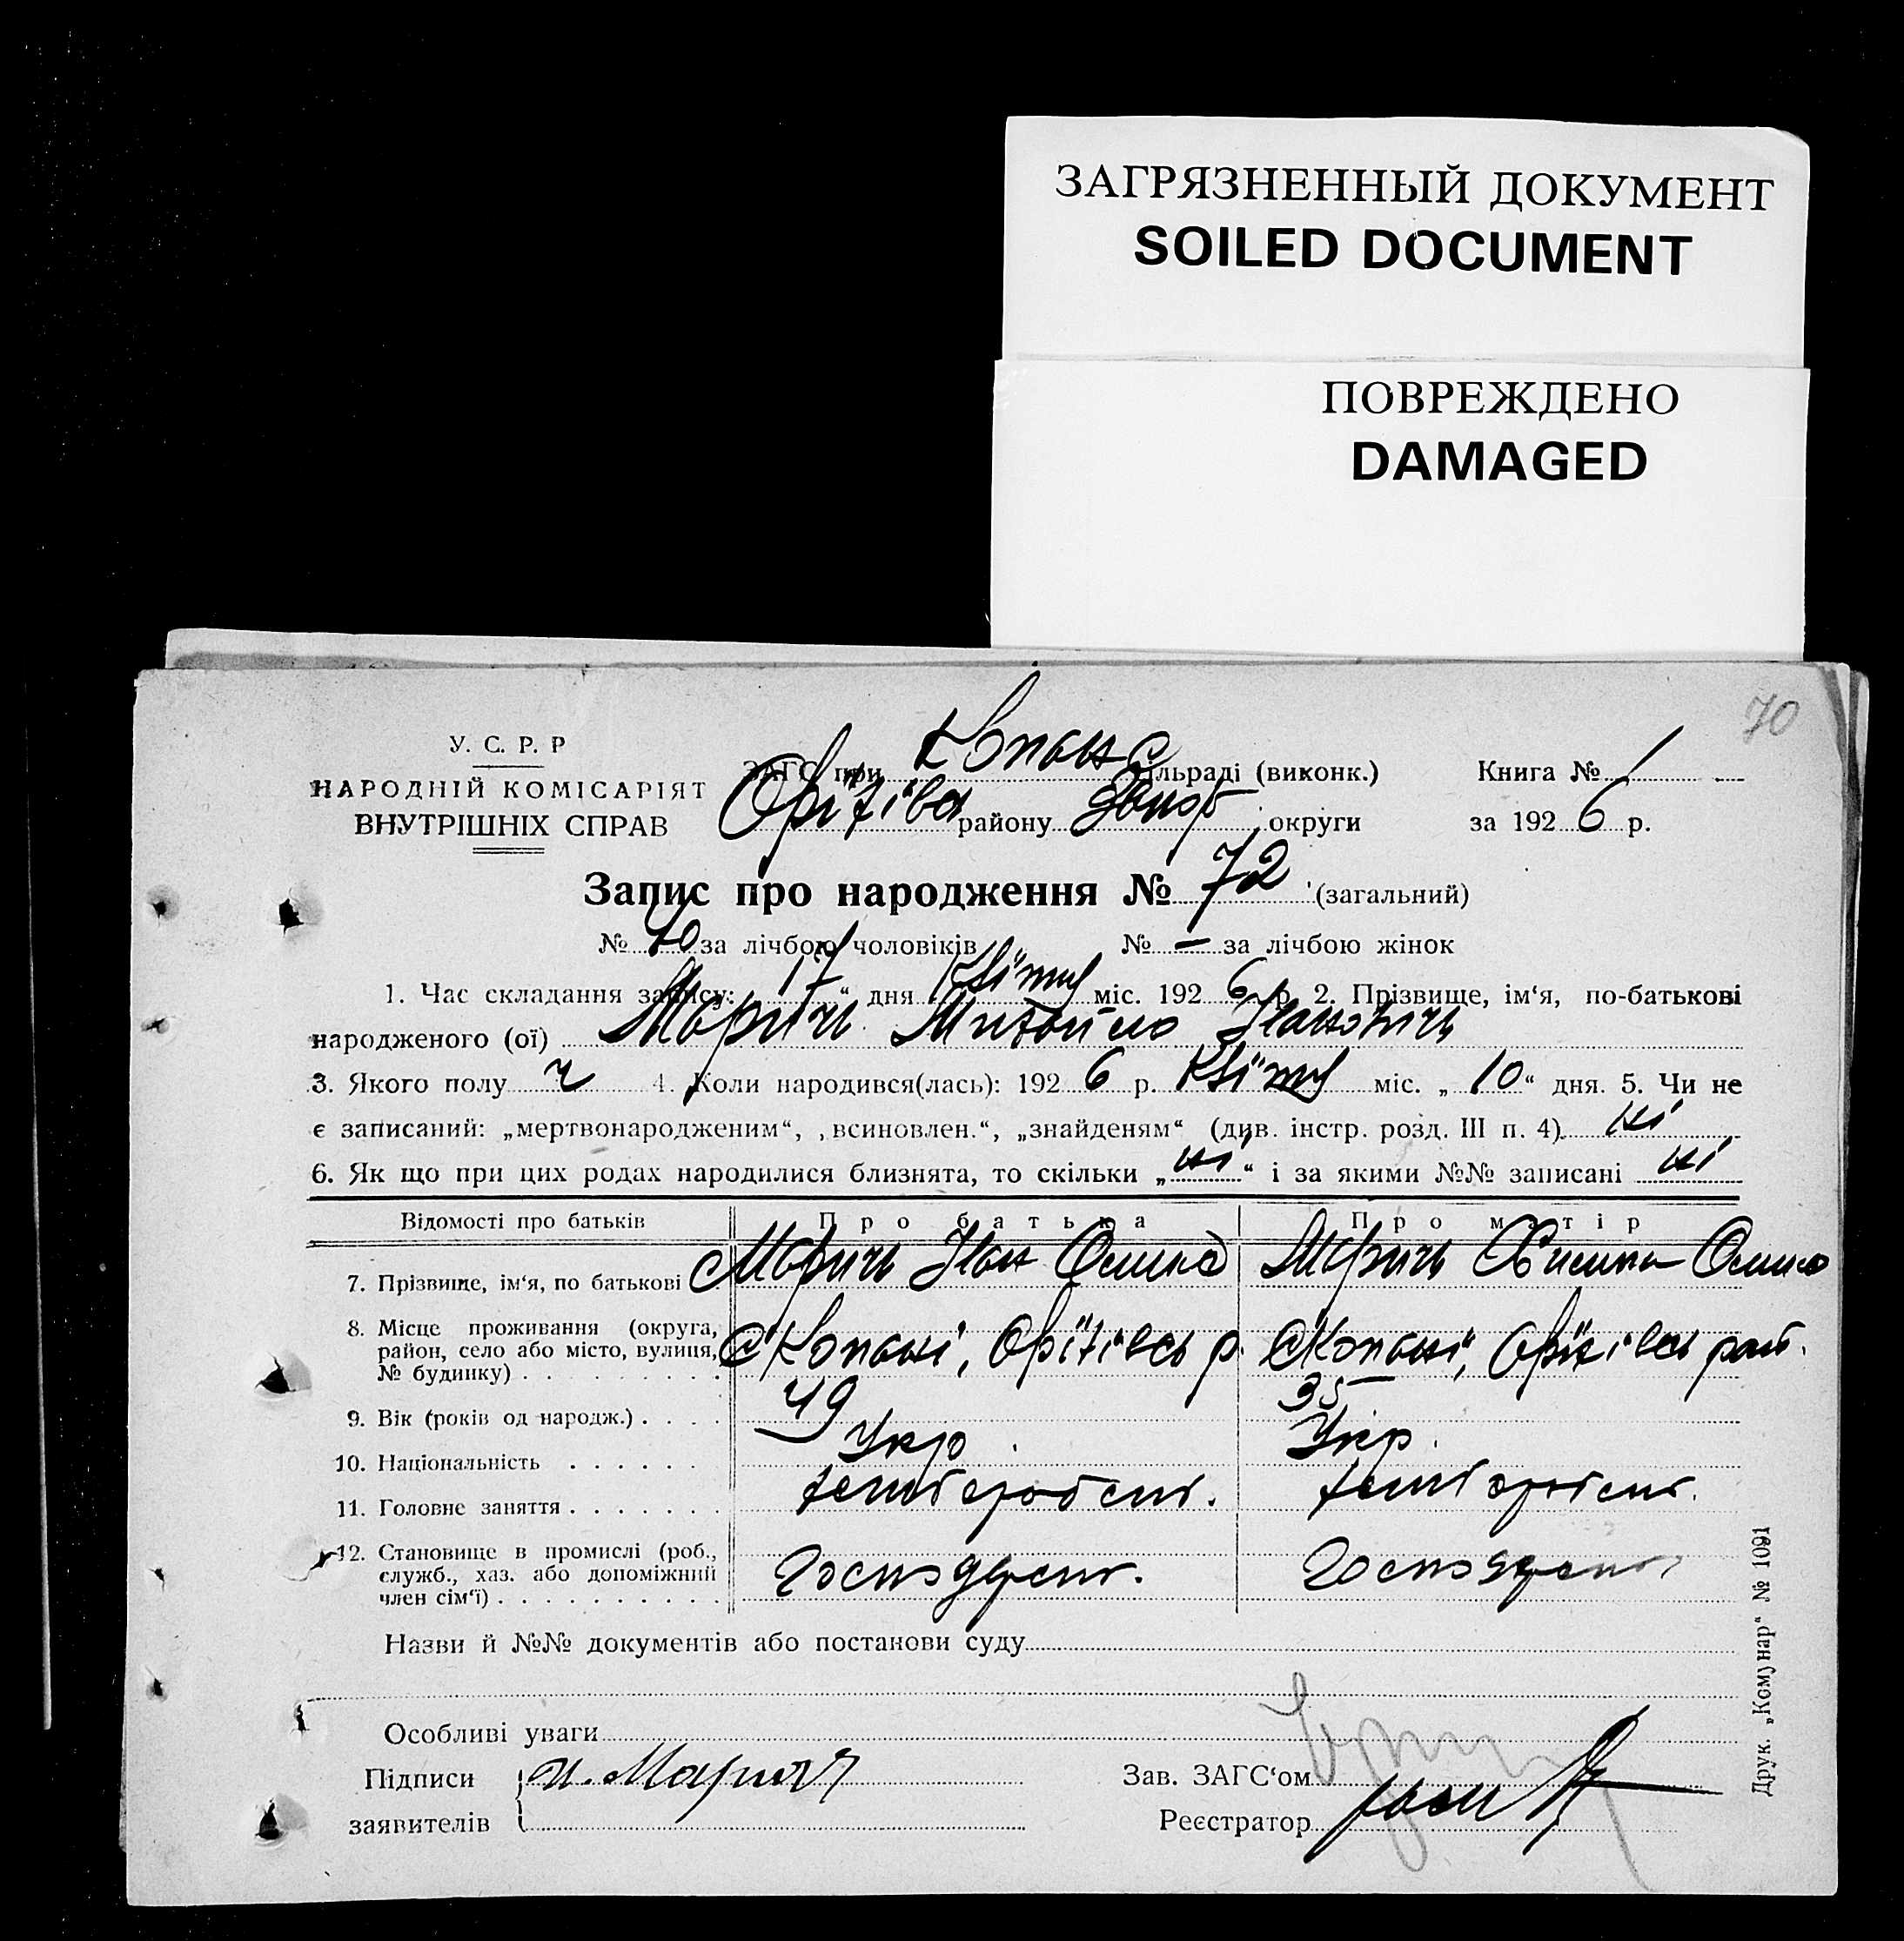 ЗАГРЯЗНЕННЫЙ ДОКУМЕНТ
SOILED DOCUMENT
ПОВРЕЖДЕНО
DAMAGED
70
У. С. Р. Р
НАРОДНІЙ КОМІСАРІЯТ
ВНУТРІШНІХ СПРАВ
ЗАГС при Копан с ільраді (виконк.) Книга № 1
району округи за 192 6 р.
Запис про народження № 72 (загальний)
№ 40 за лічбою чоловіків № — за лічбою жінок
1. Час складання запису: 17 “ дня Квітня міс. 192 6 р. 2. Прізвище, ім‘я, по-батькові
народженого (ої) Марич Михайло Іванович
3. Якого полу ч 4. Коли народився(лась): 192 6 р. Квітня міс. „ 10 “ дня. 5. Чи не
є записаний: „мертвонародженим“, „всиновлен.“, „знайденям“ (див. інстр. розд. III п. 4) ні
6. Як що при цих родах народилися близнята, то скільки „ ні “ і за якими №№ записані ні
Відомості про батьків Про батька Про матір
7. Прізвище, ім‘я, по батькові Марич Іван Марич
8. Місце проживання (округа, район, село або місто, вулиця, № будинку) с Копані, Оріхівськ р. с Копані, Оріхівськ рай.
9. Вік (років од народж.) 49 35
10. Національність Укр. Укр.
11. Головне заняття
12. Становище в промислі (роб., служб., хаз. або допоміжний член сім‘ї)
Назви й №№ документів або постанови суду
Особливі уваги
Підписи заявителів И. Марич
Зав. ЗАГС‘ом
Реєстратор
Друк. „Комунар“ № 1091